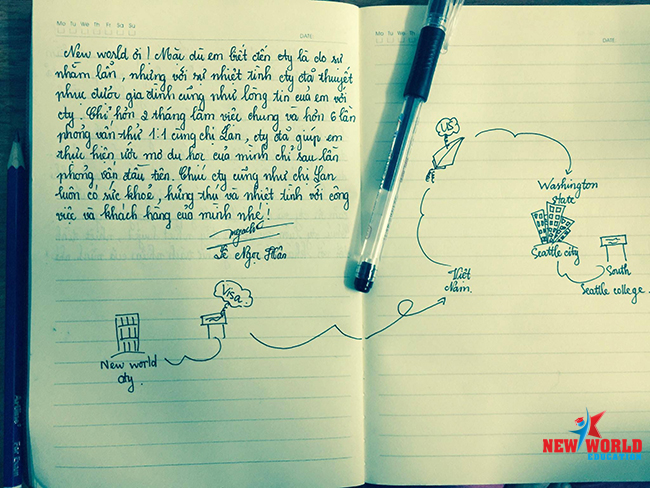 Mo Tu We Th Fr Sa Su
DATE:
New world ơi! Mặc dù em biết đến cty là do sự
nhầm lẫn, nhưng với sự nhiệt tình cty đã thuyết
phục được gia đình cũng như lòng tin của em với
cty. Chỉ hơn 2 tháng làm việc chung và hơn 6 lần
phỏng vấn thử 1:1 cùng chị Lan, cty đã giúp em
thực hiện ước mơ du học của mình chỉ sau lần
phỏng vấn đầu tiên. Chúc cty cũng như chị Lan
luôn có sức khoẻ, hứng thú và nhiệt tình với công
việc và khách hàng của mình nhé!
Ngọc
New world
cty.
Visa
Mo Tu We Th Fr Sa Su
DATE:
US
Washington
State
Seattle city
South
Seattle college.
Việt
Nam.
NEW WORLD
EDUCATION